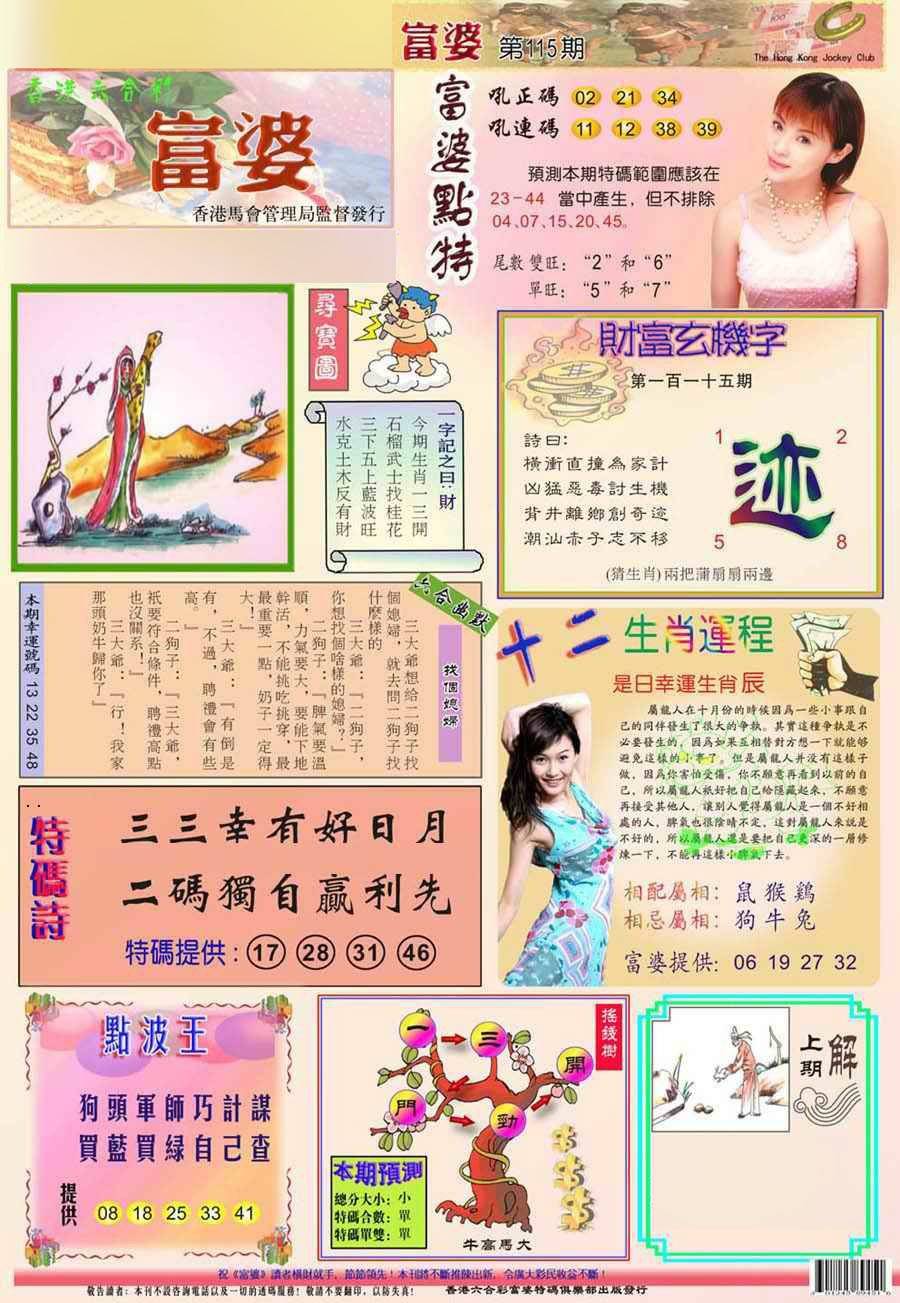 富婆 第115期
The Hong Kong Jockey Club
香港六合彩
富婆
香港馬會管理局監督發行
富婆點特
吼正碼 02 21 34
吼連碼 11 12 38 39
預測本期特碼範圍應該在
23-44 當中產生，但不排除
04、07、15、20、45。
尾數雙旺："2"和"6"
單旺："5"和"7"
尋寶圖
一字記之曰：財
今期生肖一三開
石榴武士找桂花
三下五上藍波旺
水克土木反有財
財富玄機字
第一百一十五期
詩曰：
橫衝直撞為家計
凶猛惡毒討生機
背井離鄉創奇迹
潮汕赤子志不移
1 2
迹
5 8
(猜生肖)兩把蒲扇扇兩邊
六合幽默
找個媳婦
三大爺想給二狗子找
個媳婦，就去問二狗子找
什麼樣的
三大爺：『二狗子，
你想找個啥樣的媳婦？』
二狗子：『脾氣要溫
順，力氣要大，要能下地
幹活，不能挑吃挑穿，最
最重要一點，奶子一定得
大！』
三大爺：『有倒是
有，不過，聘禮會有些
高。』
二狗子：『三大爺，
衹要符合條件，聘禮高點
也沒關系！』
三大爺：『行！我家
那頭奶牛歸你了』
本期幸運號碼 13 22 35 48
十二生肖運程
是日幸運生肖辰
屬龍人在十月份的時候因為一些小事跟自
己的同伴發生了很大的爭執。其實這種爭執是不
必要發生的，因為如果互相替對方想一下就能夠
避免這樣的小事了。但是屬龍人并沒有這樣子
做，因為你害怕受傷，你不願意再看到以前的自
己，所以屬龍人衹好把自己給隱藏起來，不願意
再接受其他人，讓別人覺得屬龍人是一個不好相
處的人，脾氣也很陰晴不定，這對屬龍人來說是
不好的，所以屬龍人還是要把自己更深的一層修
煉一下，不能再這樣小脾氣下去。
相配屬相：鼠 猴 鷄
相忌屬相：狗 牛 兔
富婆提供：06 19 27 32
特碼詩
三三幸有好日月
二碼獨自贏利先
特碼提供：17 28 31 46
點波王
狗頭軍師巧計謀
買藍買綠自己查
提供 08 18 25 33 41
搖錢樹
一 三 開
門 勁
本期預測
總分大小：小
特碼合數：單
特碼單雙：單
牛高馬大
上期解
祝《富婆》讀者橫財就手，節節領先！本刊將不斷推陳出新，令廣大彩民收益不斷！
敬告讀者：本刊不設咨詢電話以及一切的透碼服務！敬請不要翻印，以防失真！
香港六合彩富婆特碼俱樂部出版發行